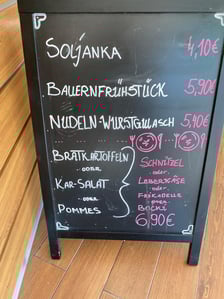 SOLJANKA 4,10€
BAUERNFRÜHSTÜCK 5,90€
NUDELN-WURSTGULASCH 5,40€
BRATKARTOFFELN
oder
KAR-SALAT
oder
POMMES
SCHNITZEL
oder
LEBERKÄSE
oder
FRIKADELLE
oder
BOCKI
6,90€